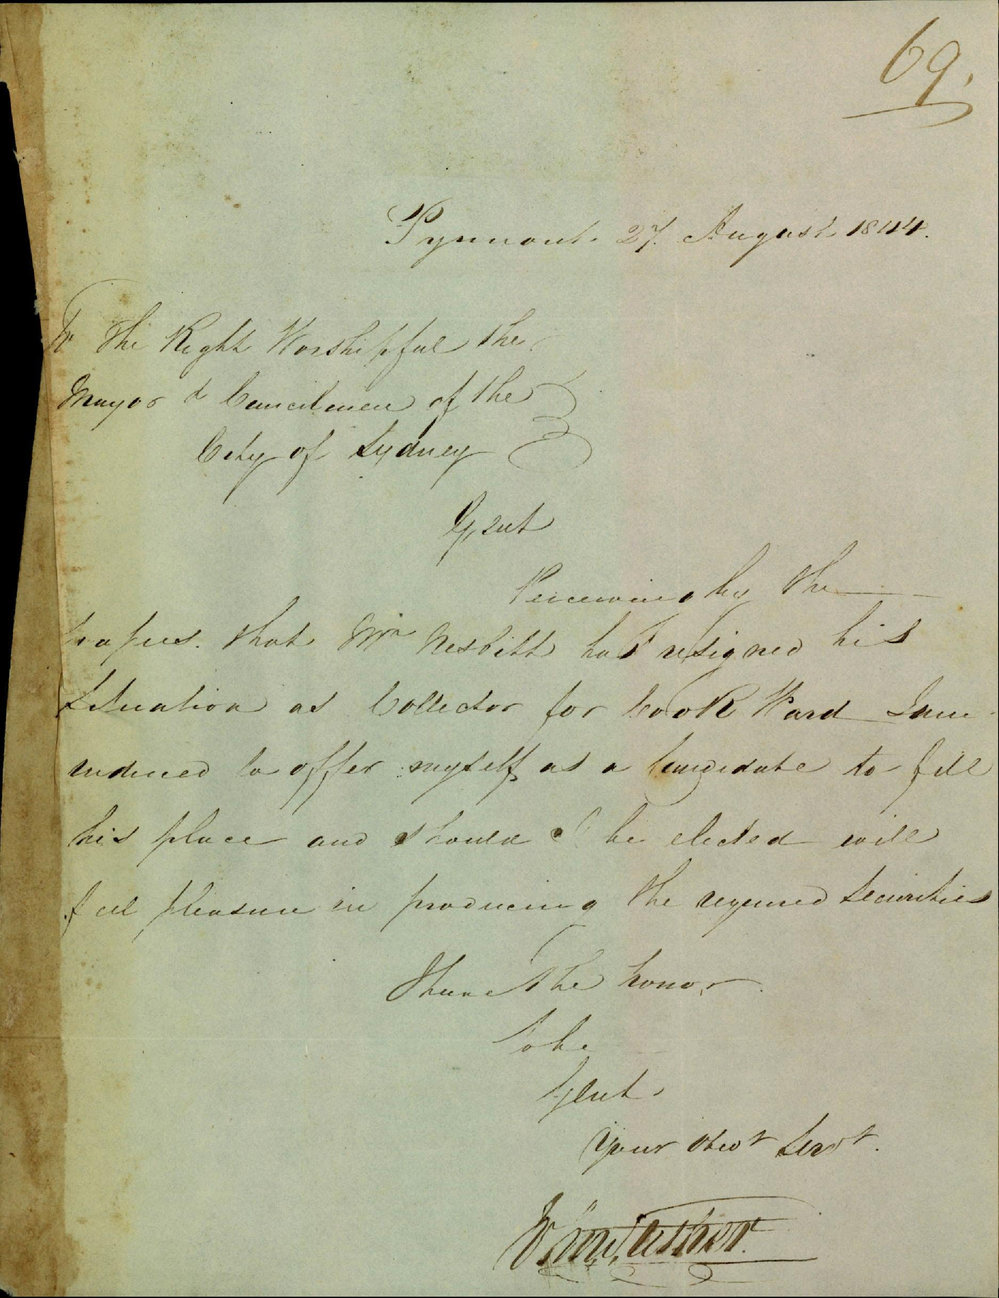 69.
Pyrmont. 27. August 1844.
To the Right Worshipful the
Mayor & Councilmen of the
City of Sydney
Gent
Perceiving by the
papers. that Mr Nesbitt has resigned his
Situation as Collector for Cook Ward I am
induced to offer myself as a Candidate to fill
his place and should I be elected will
feel pleasure in producing the required Securities
I have the honor
to be
Gent.
Your Obedt Servt.